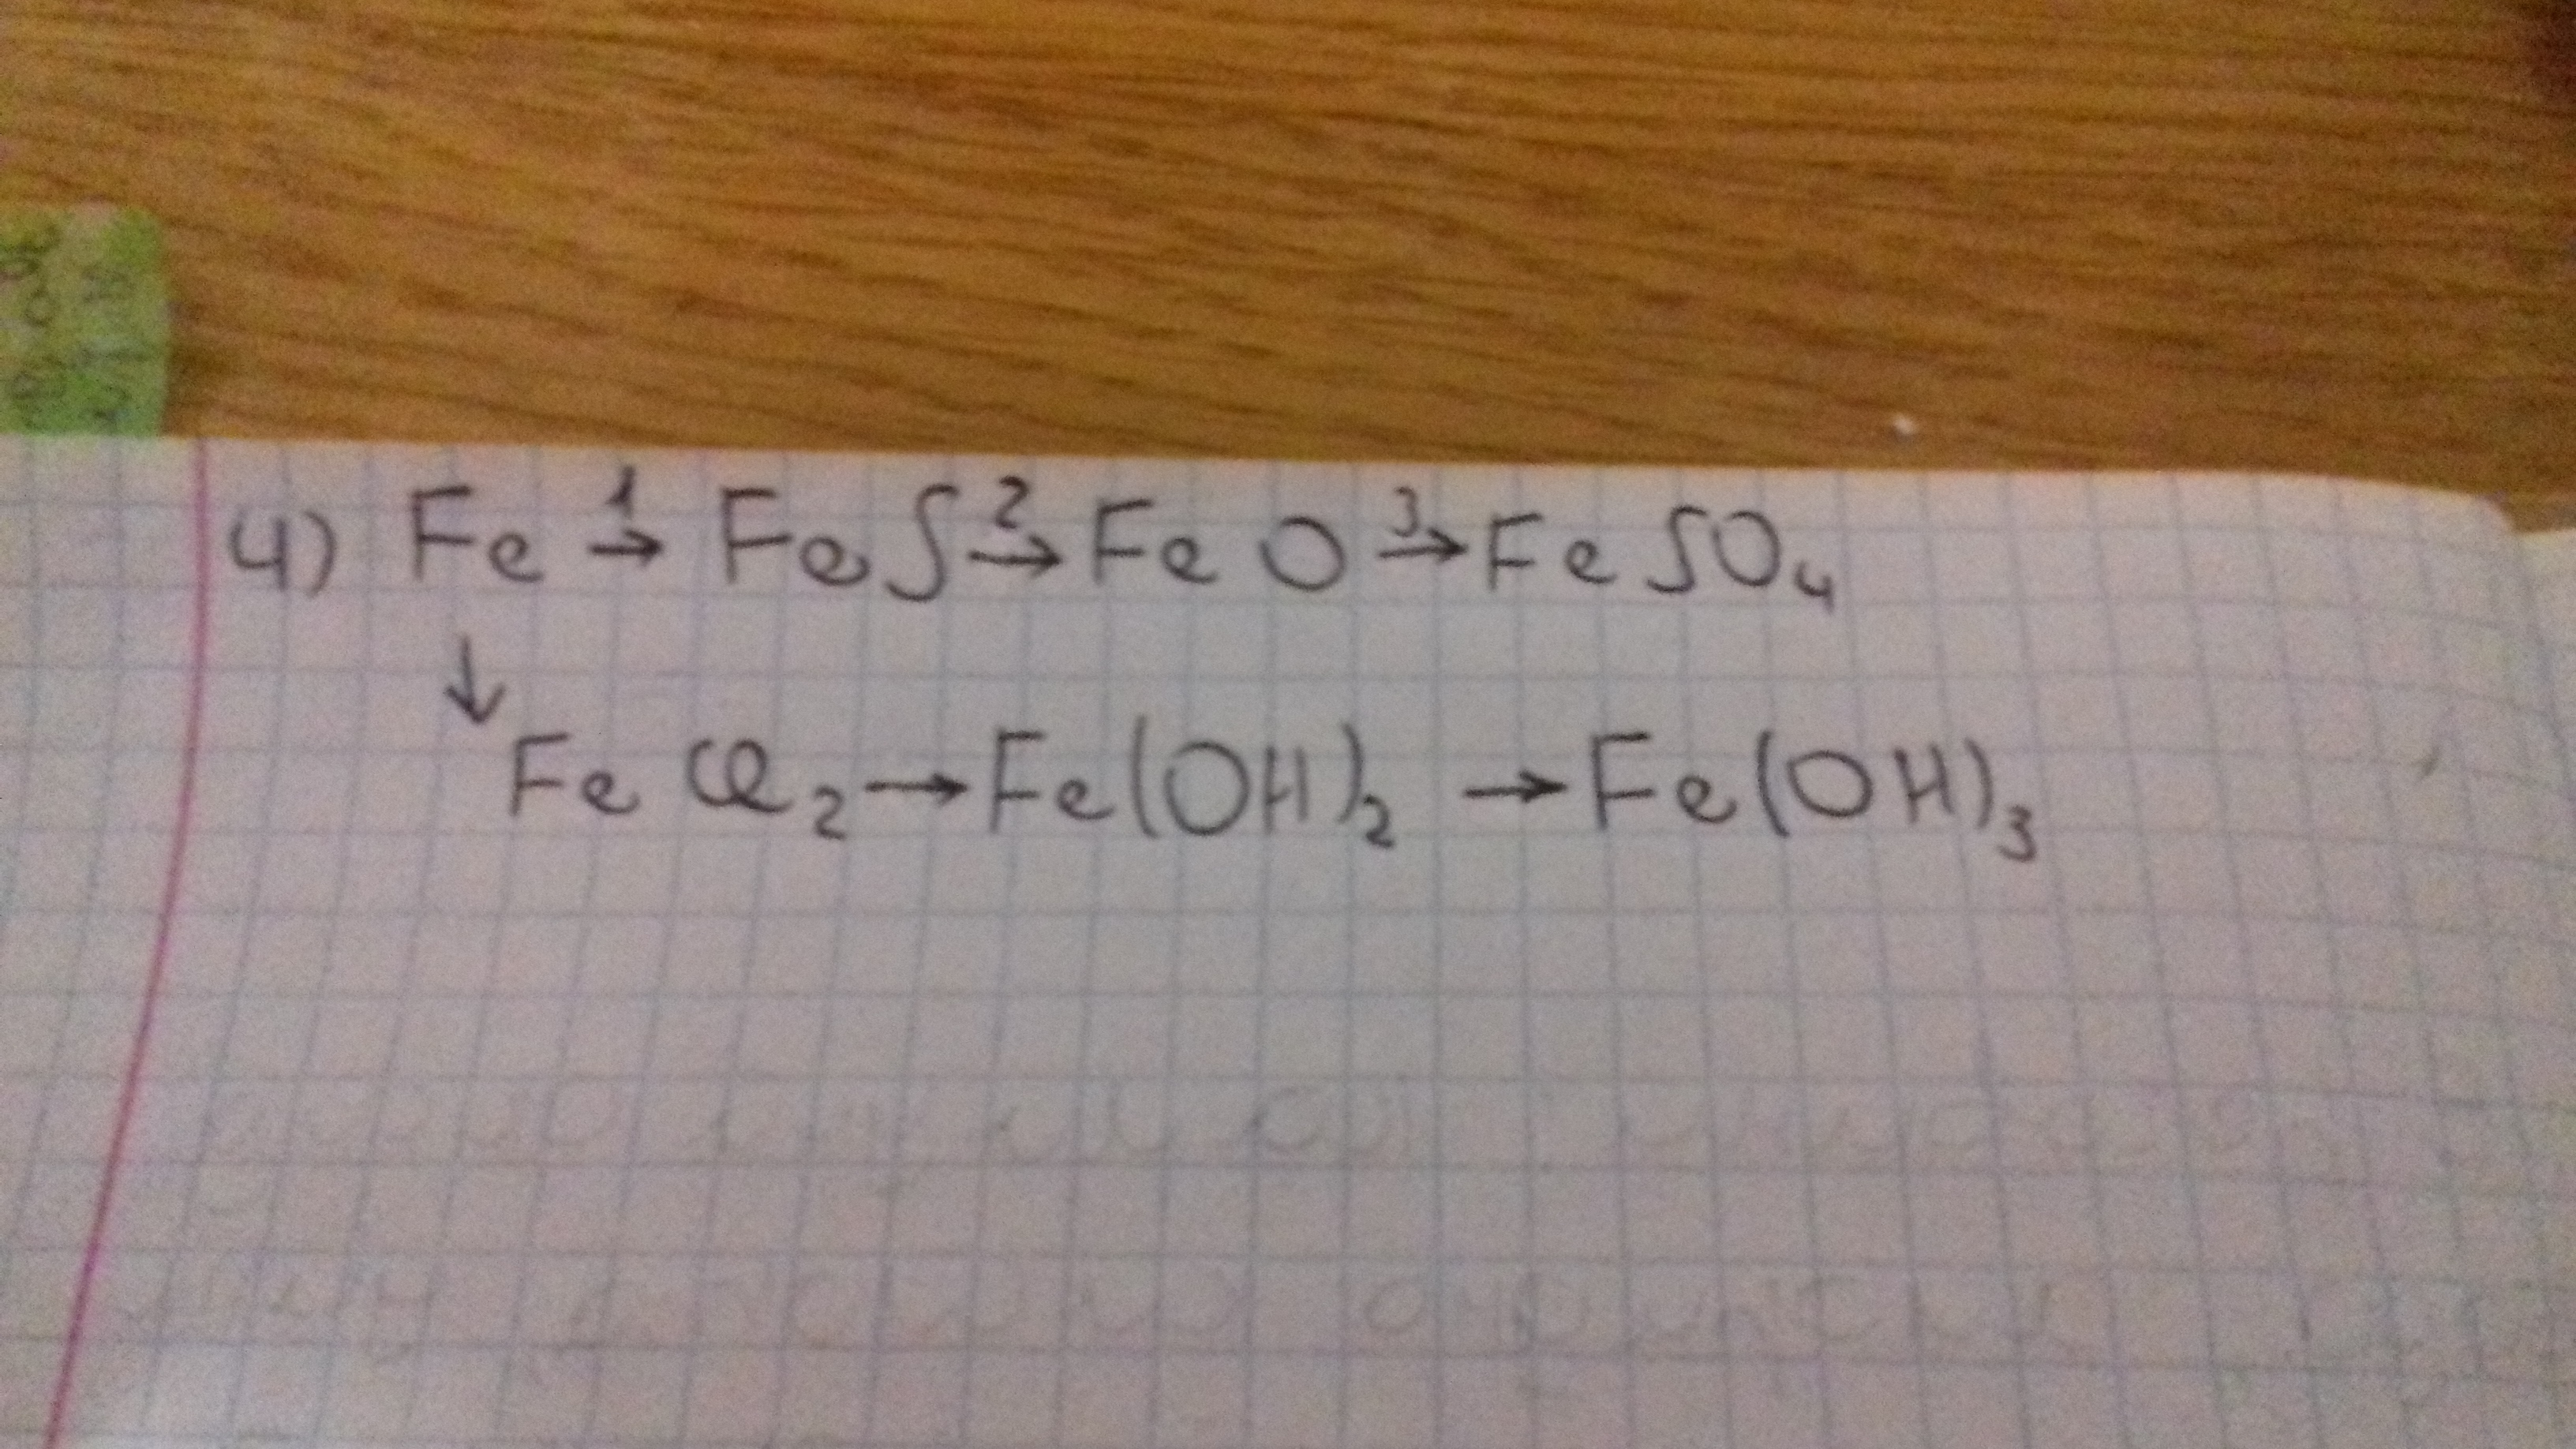 4) Fe 1→ FeS 2→ FeO 3→ FeSO₄
↓
FeCl₂ → Fe(OH)₂ → Fe(OH)₃